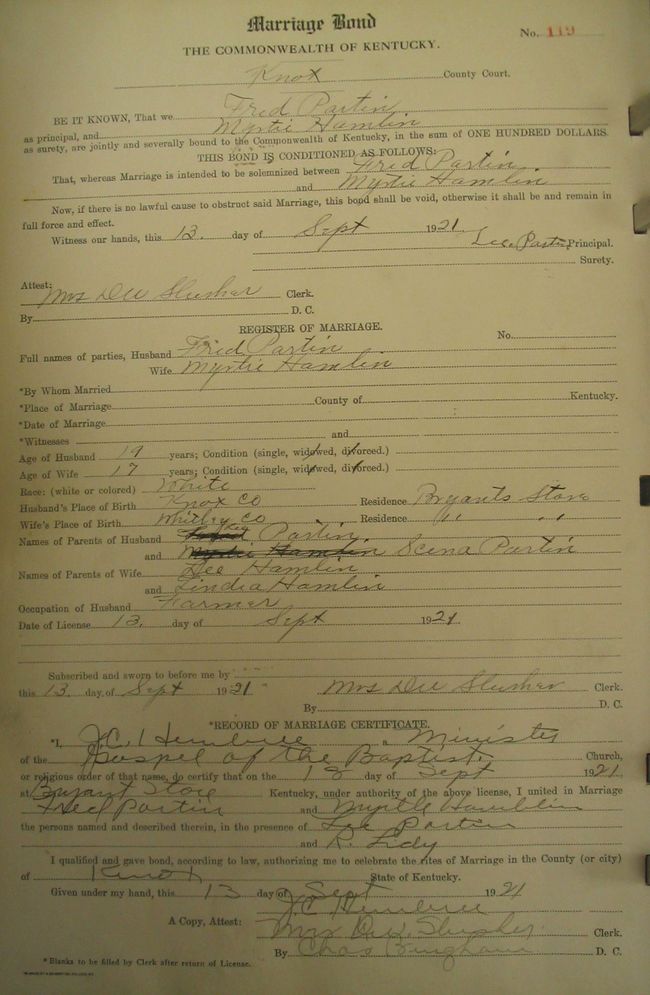 Marriage Bond
No. 119
THE COMMONWEALTH OF KENTUCKY.
Knox County Court.
BE IT KNOWN, That we Fred Partin
as principal, and Myrtie Hamlin
as surety, are jointly and severally bound to the Commonwealth of Kentucky, in the sum of ONE HUNDRED DOLLARS.
THIS BOND IS CONDITIONED AS FOLLOWS:
That, whereas Marriage is intended to be solemnized between Fred Partin
and Myrtie Hamlin
Now, if there is no lawful cause to obstruct said Marriage, this bond shall be void, otherwise it shall be and remain in
full force and effect.
Witness our hands, this 13. day of Sept 1921
Lee Partin Principal.
Surety.
Attest:
Mrs Dee Slusher Clerk.
By D. C.
REGISTER OF MARRIAGE.
No.
Full names of parties, Husband Fred Partin
Wife Myrtie Hamlin
*By Whom Married
*Place of Marriage County of Kentucky.
*Date of Marriage
*Witnesses and
Age of Husband 19 years; Condition (single, widowed, divorced.)
Age of Wife 17 years; Condition (single, widowed, divorced.)
Race: (white or colored) White
Husband's Place of Birth Knox Co Residence Bryants Store
Wife's Place of Birth Whitley Co Residence " "
Names of Parents of Husband Partin
and Myrtie Hamlin Scena Partin
Names of Parents of Wife Dee Hamlin
and Lindia Hamlin
Occupation of Husband Farmer
Date of License 13. day of Sept 1921
Subscribed and sworn to before me by
this 13 day of Sept 1921 Mrs Dee Slusher Clerk.
By D. C.
*RECORD OF MARRIAGE CERTIFICATE.
*I, J.C. Hembree a Minister
of the Gospel of the Baptist. Church,
or religious order of that name, do certify that on the 13 day of Sept 1921
at Bryant Store Kentucky, under authority of the above license, I united in Marriage
Fred Partin and Myrtle Hamblin
the persons named and described therein, in the presence of Lee Partin
and R. Lidy
I qualified and gave bond, according to law, authorizing me to celebrate the rites of Marriage in the County (or city)
of Knox State of Kentucky.
Given under my hand, this 13 day of Sept 1921
J.C. Hembree
A Copy, Attest: Mrs Dee Slusher Clerk.
By Chas Bingham D. C.
*Blanks to be filled by Clerk after return of License.